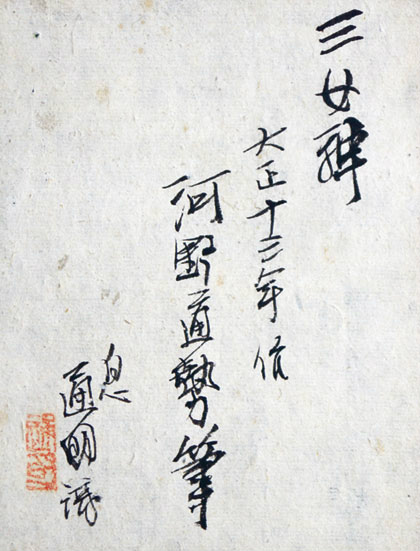 三女裸
大正十三年作
河野通勢筆
息
通明識